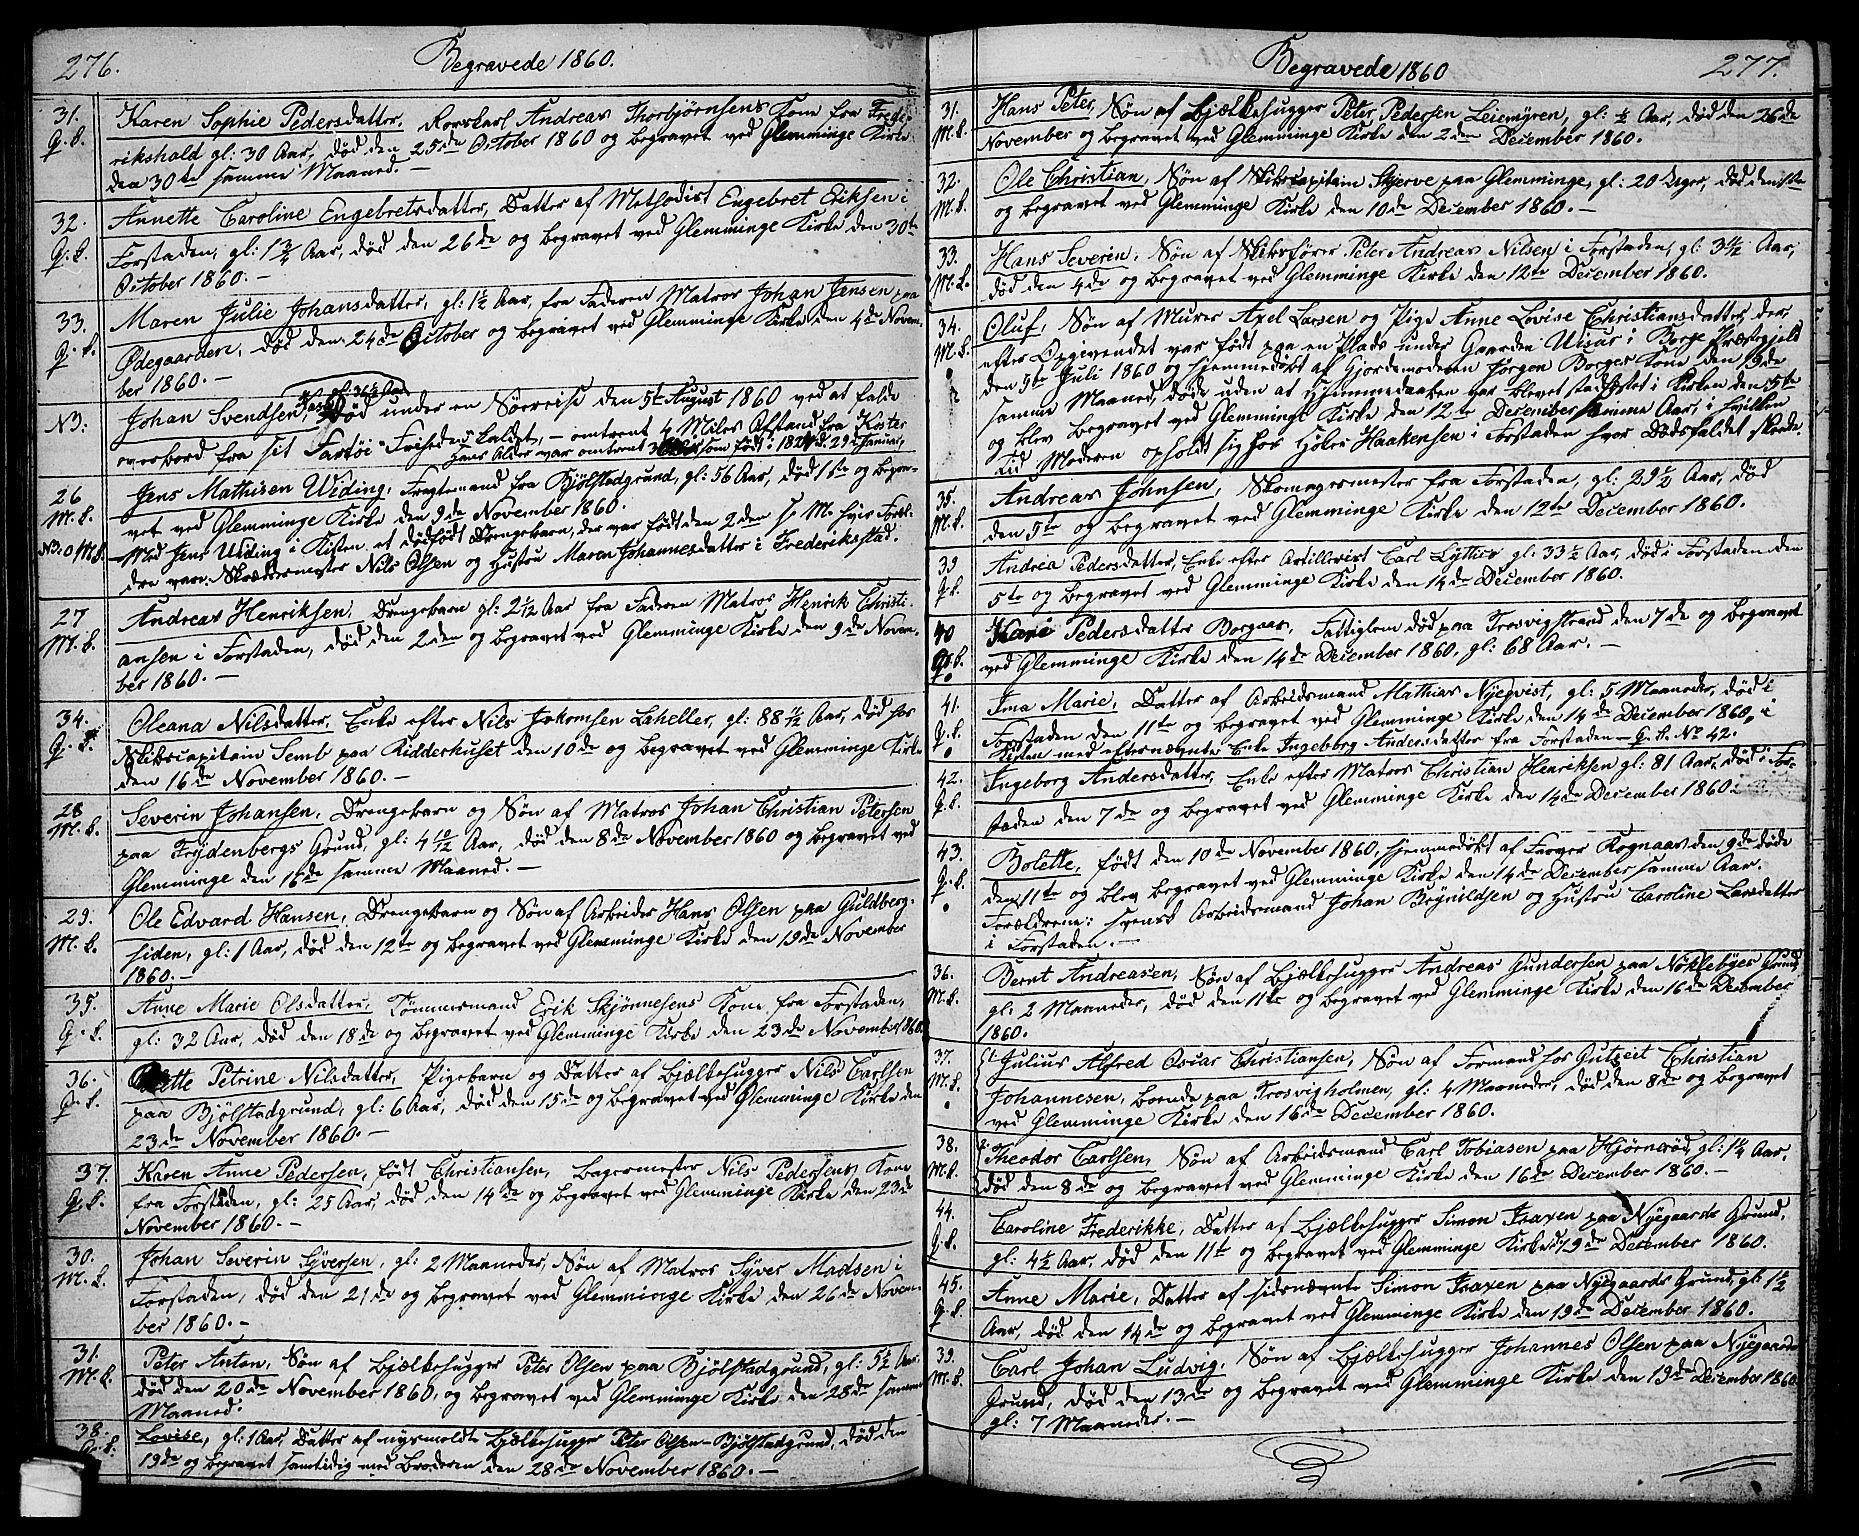 276.
Begravede 1860.
31. Karen Sophie Pedersdatter, Rorskarl Andreas Thorbjørnsens Kone fra Frede-
Q. K. rikshald gl: 30 Aar, død den 25de October 1860 og begravet ved Glemminge Kirke
den 30te samme Maaned. —
32. Annette Caroline Engebretsdatter, Datter af Methodist Engebret Eriksen i
Q. K. Forstaden, gl: 1 3/4 Aar, død den 26de og begravet ved Glemminge Kirke den 30te
October 1860. —
33. Maren Julie Johansdatter, gl: 1 1/2 Aar, fra Faderen Matros Johan Jensen paa
Q. K. Ødegaarden, død den 24de October og begravet ved Glemminge Kirke den 4de Novem-
ber 1860. —
NB: Johan Svendsen, død under en Søereise den 5te August 1860 ved at falde
overbord fra sit Fartøi "Friheden" kaldet, — omtrent 4 Miles Afstand fra Koster
hans Alder var omtrent som født: 29de Januar,
26 Jens Mathisen Widing, fra Bjølstadgrund, gl: 56 Aar, død 1ste og begra-
M. K. vet ved Glemminge Kirke den 9de November 1860.
NB: 0 M. K. — Med Jens Widing i Kisten et dødfødt Drengebarn, der var født den 2den s. M. hvis Foræl-
dre vare: Skræddermester Nils Olsen og Hustru Maren Johannesdatter i Frederikstad.
27 Andreas Henriksen, Drengebarn gl: 2 1/12 Aar fra Faderen Matros Henrik Christi-
M. K. ansen i Forstaden, død den 2den og begravet ved Glemminge Kirke den 9de Novem-
ber 1860. —
34. Oleana Nilsdatter, Enke efter Nils Johannsen Laheller, gl: 88 1/2 Aar, død hos
Q. K. Skibscapitain Semb paa Ridderhuset den 10de og begravet ved Glemminge Kirke
den 16de November 1860. —
28 Severin Johansen, Drengebarn og Søn af Matros Johan Christian Petersen
M. K. paa Frydenbergs Grund, gl: 4 10/12 Aar, død den 8de November 1860 og begravet ved
Glemminge den 16de samme Maaned. —
29. Ole Edvard Hansen, Drengebarn og Søn af Arbeider Hans Olsen paa Guldberg-
M. K. siden, gl: 1 Aar, død den 12te og begravet ved Glemminge Kirke den 19de November
1860. —
35. Anne Marie Olsdatter, Tømmermand Erik Skjønnesens Kone fra Forstaden,
Q. K. gl: 32 Aar, død den 18de og begravet ved Glemminge Kirke den 23de November 1860.
36. Petrine Nilsdatter, Pigebarn og Datter af Bjælkehugger Nils Carlsen
Q. K. paa Bjølstadgrund, gl: 6 Aar, død den 15de og begravet ved Glemminge Kirke den
23de November 1860. —
37. Karen Anne Pedersen, født Christiansen, Bagermester Nils Pedersens Kone
Q. K. fra Forstaden, gl: 25 Aar, død den 14de og begravet ved Glemminge Kirke den 23de
November 1860. —
30. Johan Severin Syversen, gl: 2 Maaneder, Søn af Matros Syver Madsen i
M. K. Forstaden, død den 21de og begravet ved Glemminge Kirke den 26de Novem-
ber 1860. —
31. Peter Anton, Søn af Bjælkehugger Peter Olsen paa Bjølstadgrund, gl: 5 1/2 Aar
M. K. død den 20de November 1860, og begravet ved Glemminge Kirke den 28de samme
Maaned.
38. Lovise, gl: 1 Aar, Datter af nysmeldte Bjælkehugger Peter Olsen — Bjølstadgrund, død den
Q. K. 19de og begravet samtidig med Broderen den 28de November 1860. —
Begravede 1860
277.
31. Hans Peter, Søn af Bjælkehugger Peter Pedersen Leiemgren, gl: 1/2 Aar, død den 26de
M. K. November og begravet ved Glemminge Kirke den 2den December 1860.
32. Ole Christian, Søn af Skibscapitain Skjerve paa Glemminge, gl: 20 Uger, død den 1ste
M. K. og begravet ved Glemminge Kirke den 10de December 1860. —
33. Hans Severin, Søn af Skibsfører Peter Andreas Nilsen i Forstaden, gl: 3 1/2 Aar,
M. K. død den 4de og begravet ved Glemminge Kirke den 12te December 1860.
34. Oluf, Søn af Murer Axel Larsen og Pige Anne Lovise Christiansdatter, der
M. K. efter Opgivendet var født paa en Plads under Gaarden Uisar i Borge Præstegjeld
den 5te Juli 1860 og hjemmedøbt af Gjordemoderen Jørgen Borges Kone den 19de
samme Maaned, døde uden at Hjemmedaaben var blevet stadfæstet i Kirken den 5te
og blev begravet ved Glemminge Kirke den 12te December samme Aar, i hvilken
Tid Moderen opholdt sig hos Høker Haakensen i Forstaden hvor Dødsfaldet skede.
35. Andreas Johnsen, Skomagermester fra Forstaden, gl: 29 1/2 Aar, død
M. K. den 5te og begravet ved Glemminge Kirke den 12te December 1860.
39 Andrea Pedersdatter, Enke efter Artillerist Carl gl: 33 1/2 Aar, død i Forstaden den
Q. K. 5te og begravet ved Glemminge Kirke den 14de December 1860.
40 Karie Pedersdatter Borgaas, Fattiglem død paa Trosvigstrand den 7de og begravet
Q. K. ved Glemminge Kirke den 14de December 1860, gl: 68 Aar. —
41. Ima Marie, Datter af Arbeidsmand Mathias Nyeqvist, gl: 5 Maaneder, død i
Q. K. Forstaden den 11te og begravet ved Glemminge Kirke den 14de December 1860, i
Kisten med efternævnte Enke Ingeborg Andersdatter fra Forstaden — Q. K. No 42.
42. Ingeborg Andersdatter, Enke efter Matros Christian Henriksen gl: 81 Aar, død i For-
Q. K. staden den 7de og begravet ved Glemminge Kirke den 14de December 1860.
43. Bolette, født den 10de November 1860, hjemmedøbt af Farver Rognaas den 9de døde
Q. K. den 11te og blev begravet ved Glemminge Kirke den 14de December samme Aar.
Forældrene: svensk Arbeidsmand Johan Brynildsen og Hustru Caroline Larsdatter
i Forstaden. —
36. Bernt Andreasen, Søn af Bjælkehugger Andreas Gundersen paa Nøklebyes Grund,
M. K. gl: 2 Maaneder, død den 11te og begravet ved Glemminge Kirke den 16de December
1860.
37. Julius Alfred Oscar Christiansen, Søn af Formand hos Gutzeit Christian
M. K. Johannesen, boende paa Trosvigholmen, gl: 4 Maaneder, død den 8de og begravet
ved Glemminge Kirke den 16de December 1860.
38. Theodor Carlsen, Søn af Arbeidsmand Carl Tobiasen paa Hjørnerød, gl: 1 1/4 Aar,
M. K. død den 8de og begravet ved Glemminge Kirke den 16de December 1860. —
44. Caroline Frederikke, Datter af Bjælkehugger Simon Fraxen paa Nyegaards Grund,
Q. K. gl: 4 1/2 Aar, død den 11te og begravet ved Glemminge Kirke 19de December 1860.
45. Anne Marie, Datter af sidsnævnte Simon Fraxen paa Nyegaards Grund, gl: 1 1/2
Q. K. Aar, død den 14de og begravet ved Glemminge Kirke den 19de December 1860.
39. Carl Johan Ludvig, Søn af Bjælkehugger Johannes Olsen paa Nyegaards
M. K. Grund, død den 13de og begravet ved Glemminge Kirke den 19de December 1860
gl: 7 Maaneder. —